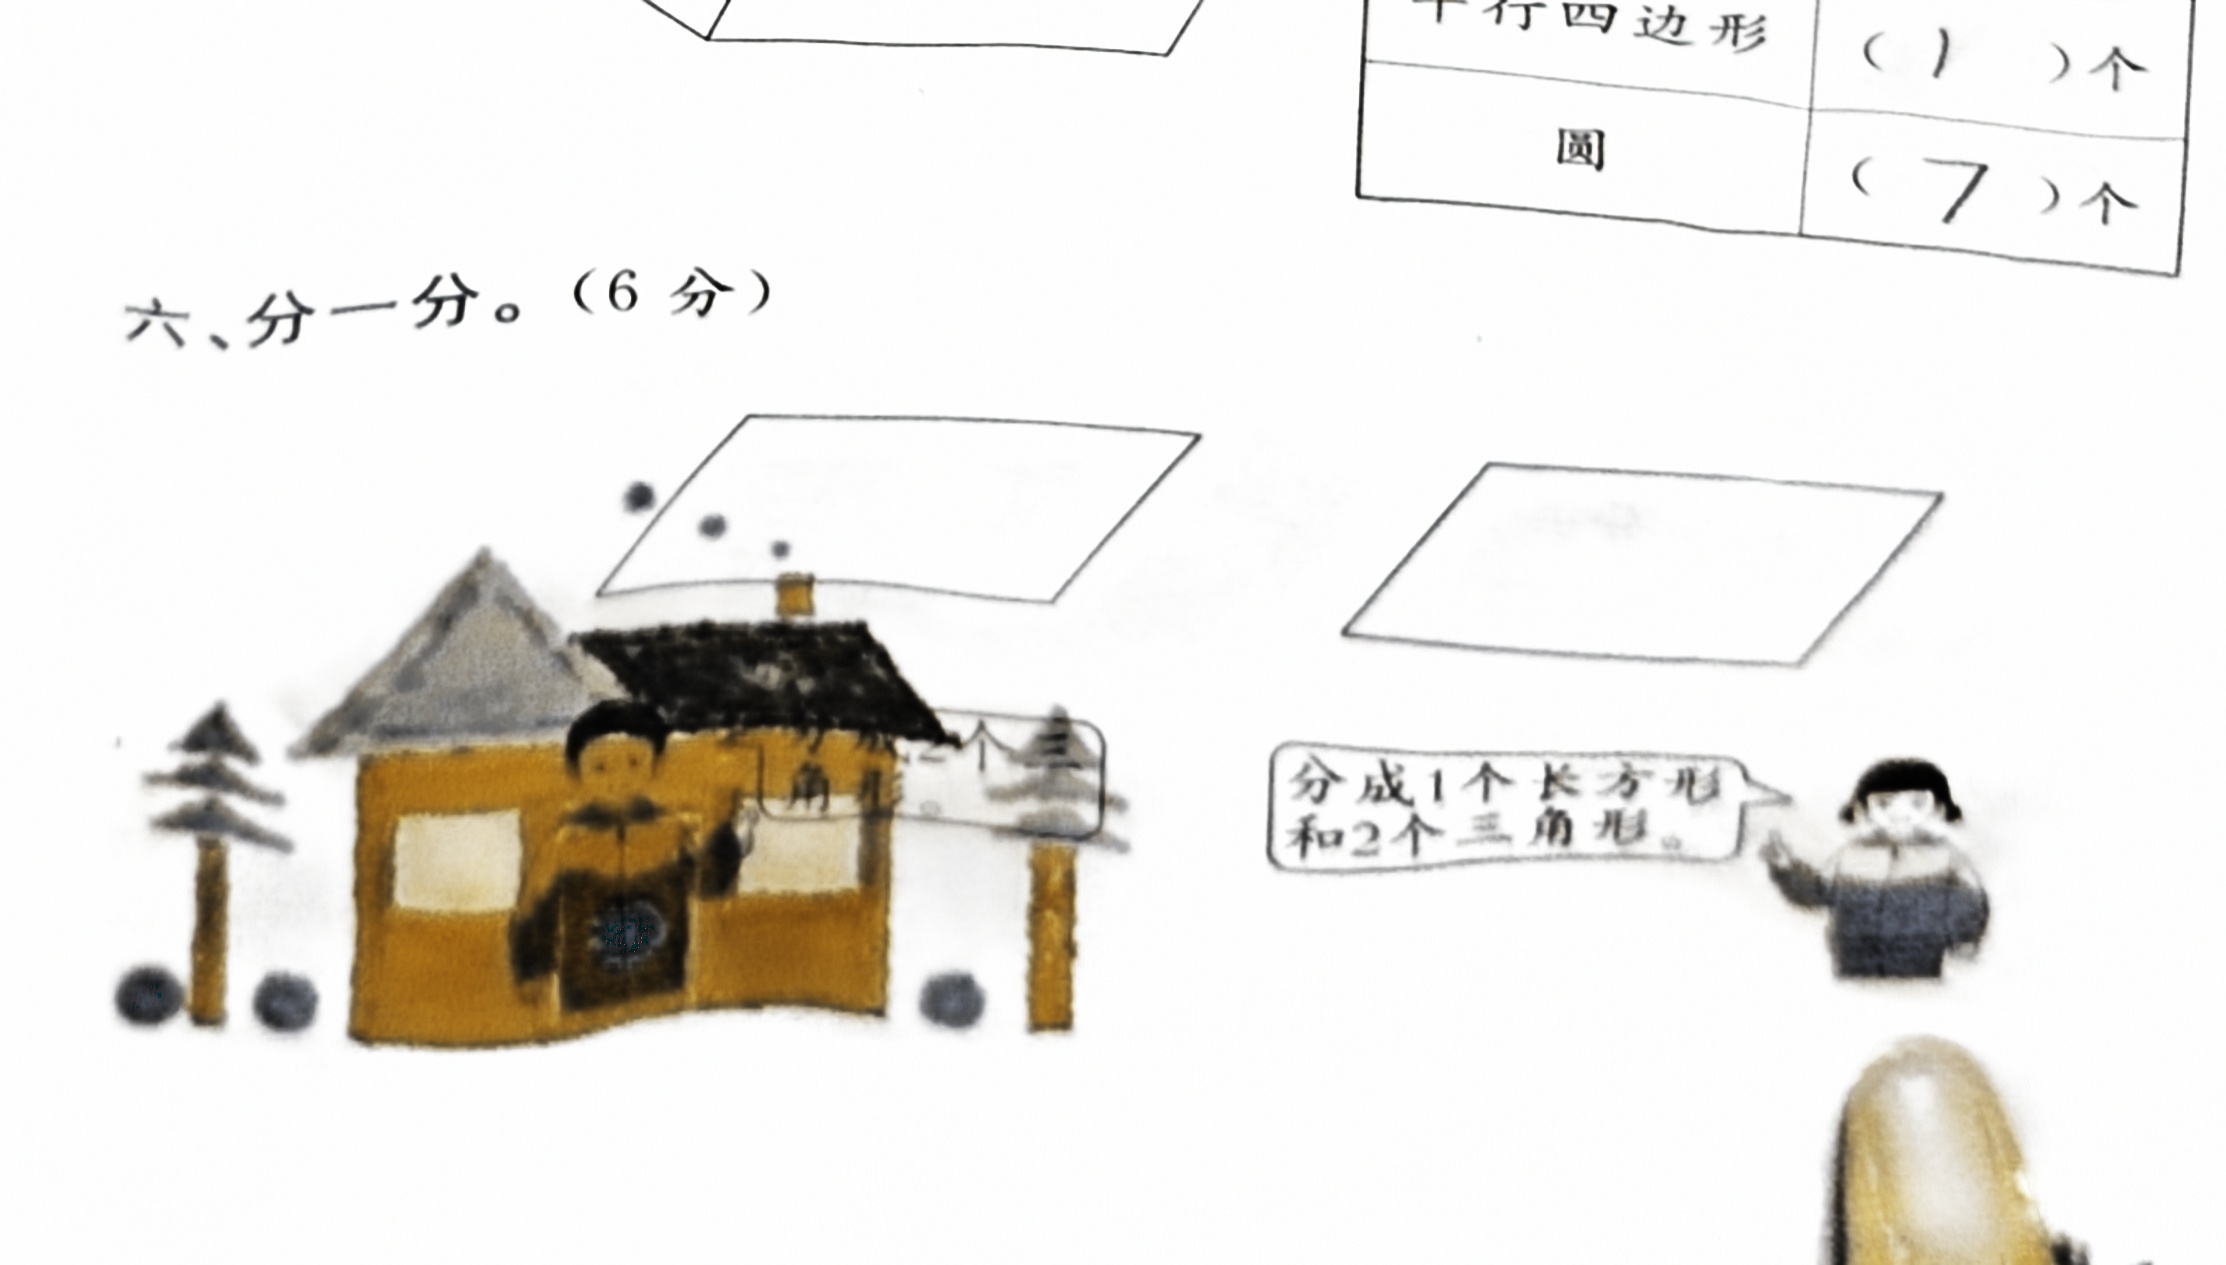 平行四边形 （ 1 ）个
圆 （ 7 ）个
六、分一分。（6 分）
个三
角形。
分成1个长方形
和2个三角形。